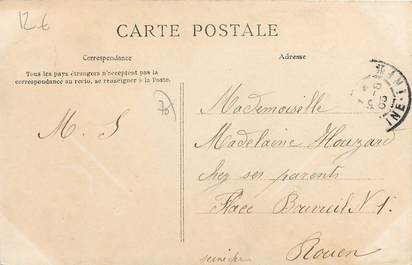 12 €
CARTE POSTALE
Correspondance
Adresse
Tous les pays étrangers n'acceptent pas la
correspondance au recto, se renseigner à la Poste.
78
M. S
Mademoiselle
Madelaine Houzard
chez ses parents
Place Bouvreuil N 1.
Rouen